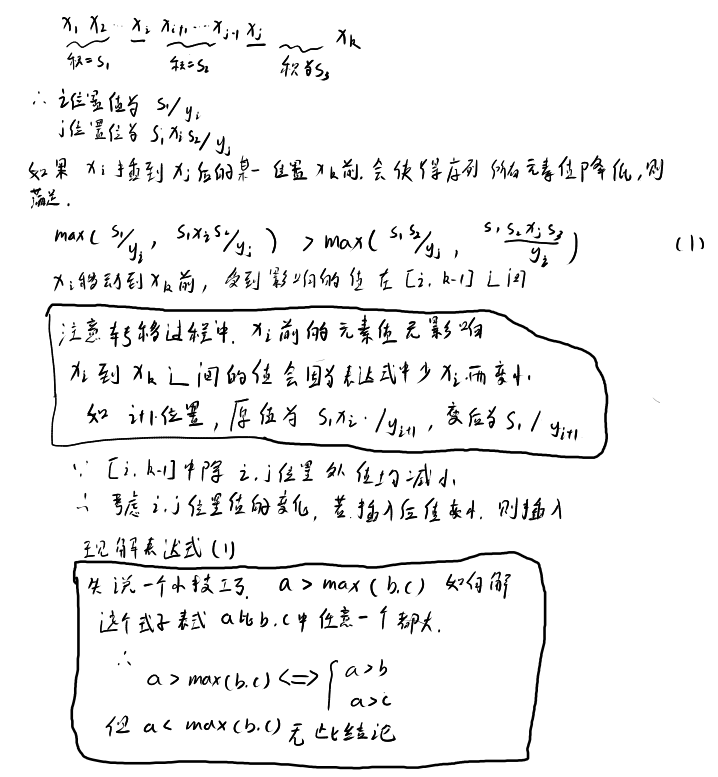 x₁ x₂ ... xᵢ xᵢ₊₁ ... xⱼ₋₁ xⱼ xₖ
积=S₁ 积=S₂ 积为S₃
∴ i位置值为 S₁/yᵢ
j位置值为 S₁xᵢS₂/yⱼ
如果 xᵢ 插到 xⱼ 后的某一位置 xₖ前. 会使得序列所有元素值降低, 则
满足.
max( S₁/yᵢ , S₁xᵢS₂/yⱼ ) > max( S₁S₂/yⱼ , S₁S₂xⱼS₃/yᵢ ) (1)
xᵢ移动到 xₖ前, 受到影响的值在 [i, k-1] 之间
注意转移过程中. xᵢ前的元素值无影响
xᵢ到 xₖ之间的值会因为表达式中少 xᵢ而变小.
如 i+1位置, 原值为 S₁xᵢ·/yᵢ₊₁ , 变后为 S₁/yᵢ₊₁
∵ [i, k-1]中除 i.j位置外值均减小
∴ 考虑 i.j位置值的变化, 若插入后值变小. 则插入
现解表达式(1)
先说一个小技巧. a > max(b.c) 如何解
这个式子表示 a比b.c中任意一个都大.
∴
a > max(b.c) <=> { a>b
a>c
但 a < max(b.c) 无此结论